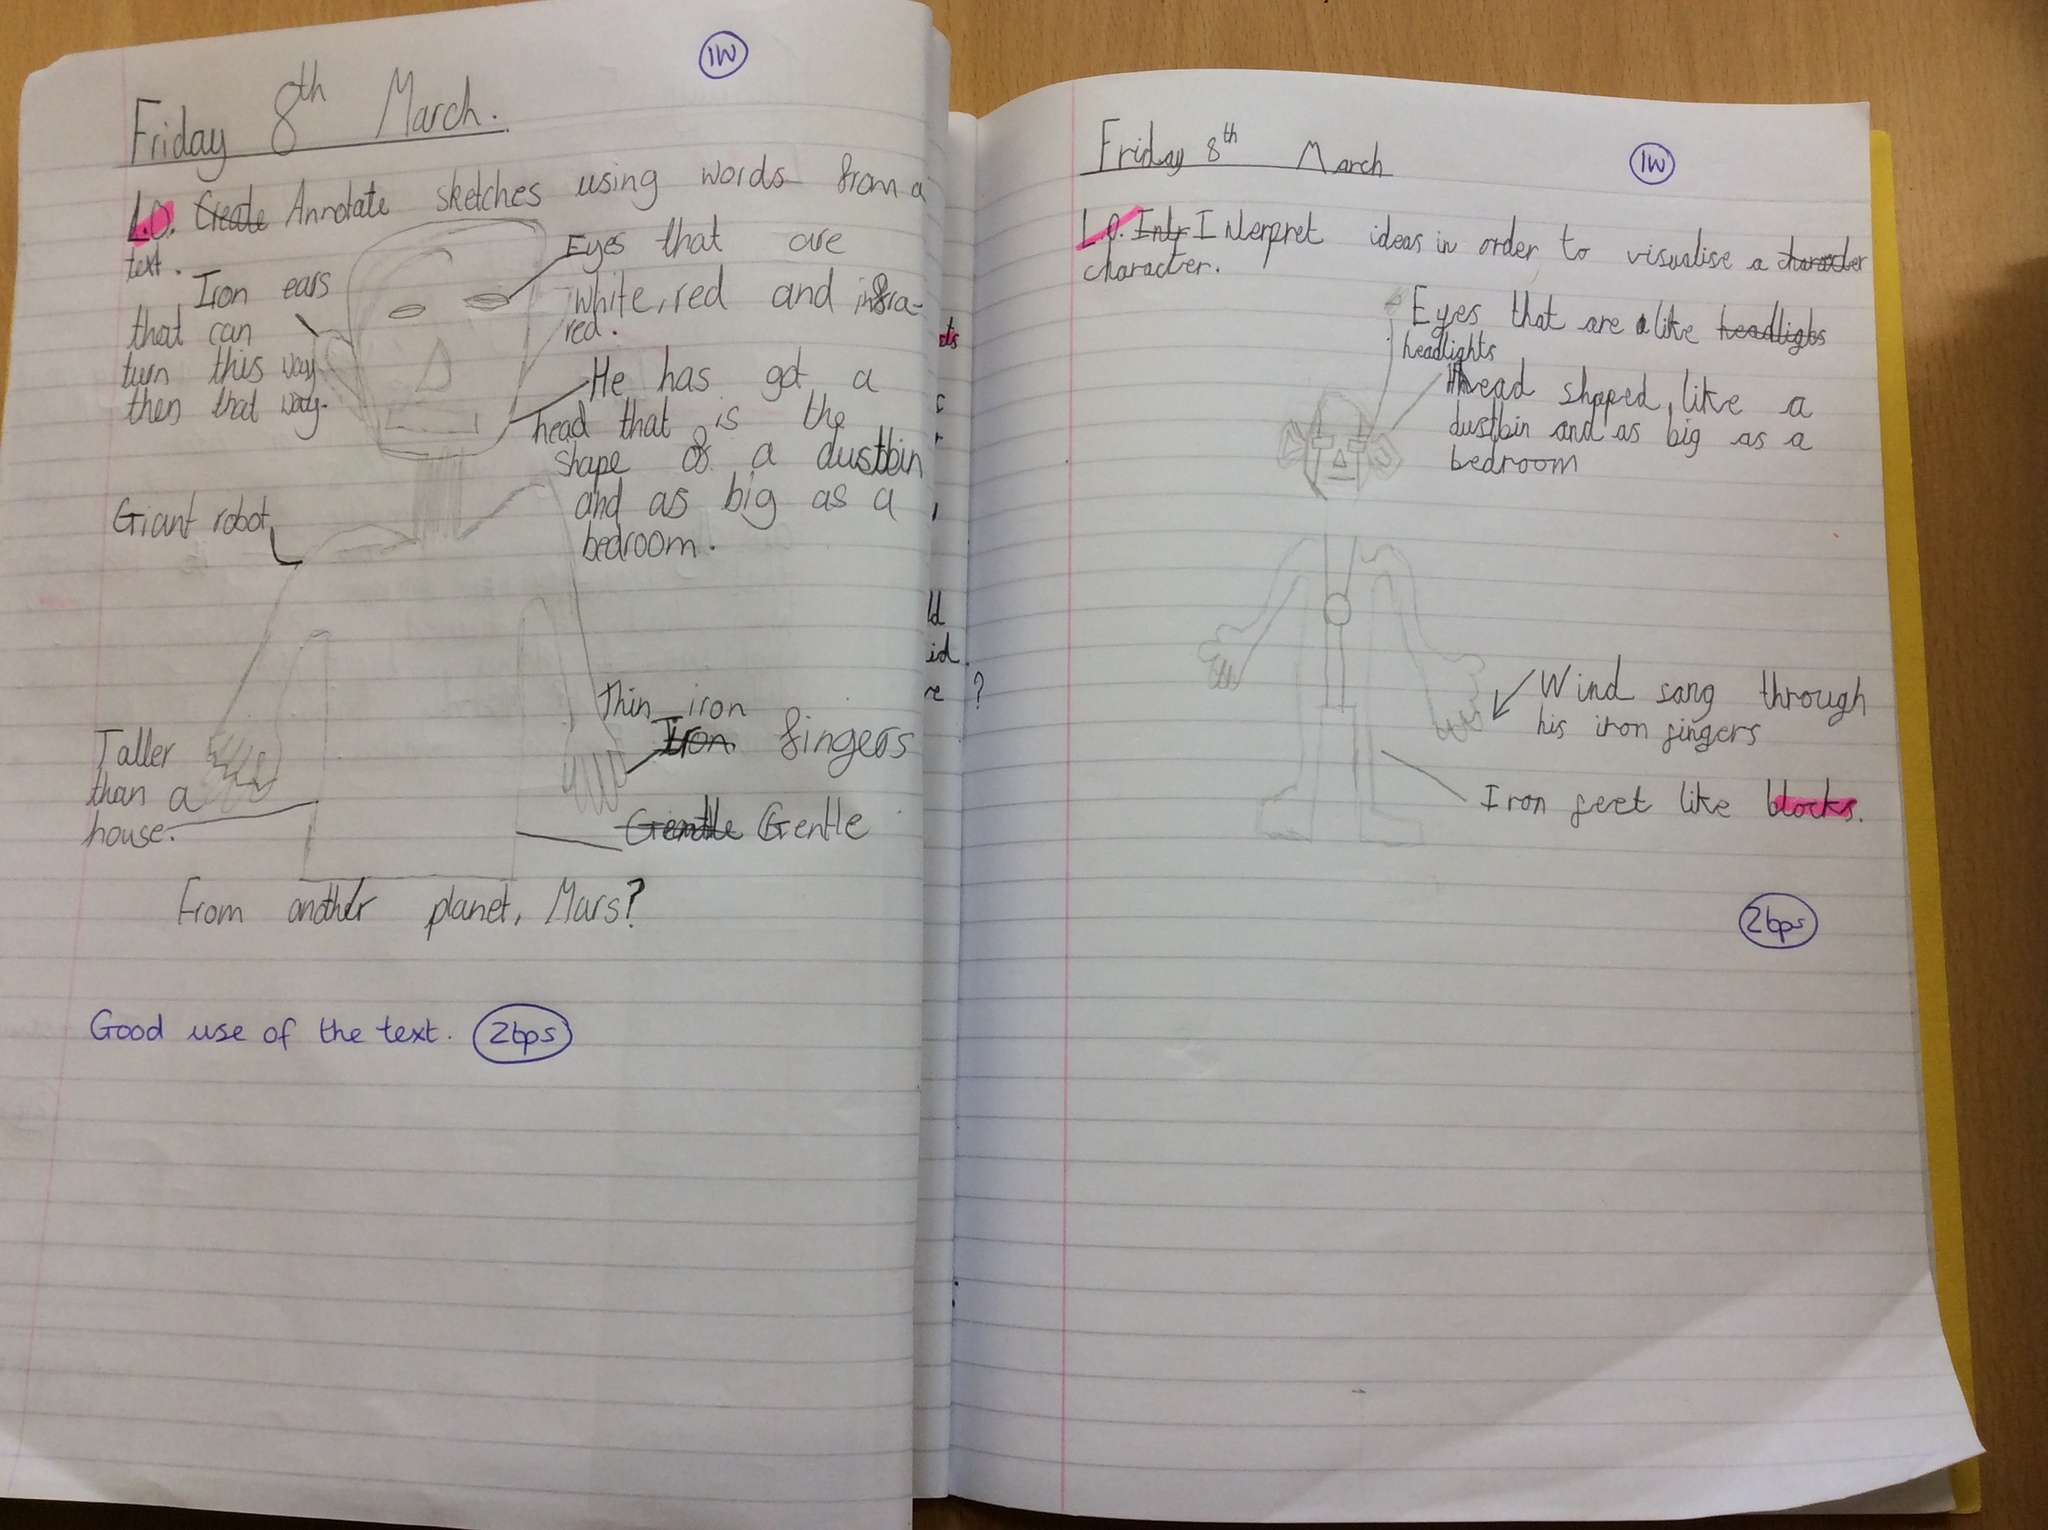 1W
Friday 8th March.
L.O. Create Annotate sketches using words from a
text.
Iron ears
that can
turn this way
then that way.
Eyes that are
white, red and infra-
red.
He has got a
head that is the
shape of a dustbin
and as big as a
bedroom.
Giant robot
Thin iron
Iron fingers
Taller
than a
house.
Gentle Gentle
From another planet, Mars?
Good use of the text. 2bps
ts
r
ld
id.
re ?
Friday 8th March
1W
L.O. Intr Interpret ideas in order to visualise a character
character.
Eyes that are like headlighs
headlights
Head shaped like a
dustbin and as big as a
bedroom
Wind sang through
his iron fingers
Iron feet like blocks.
2bps